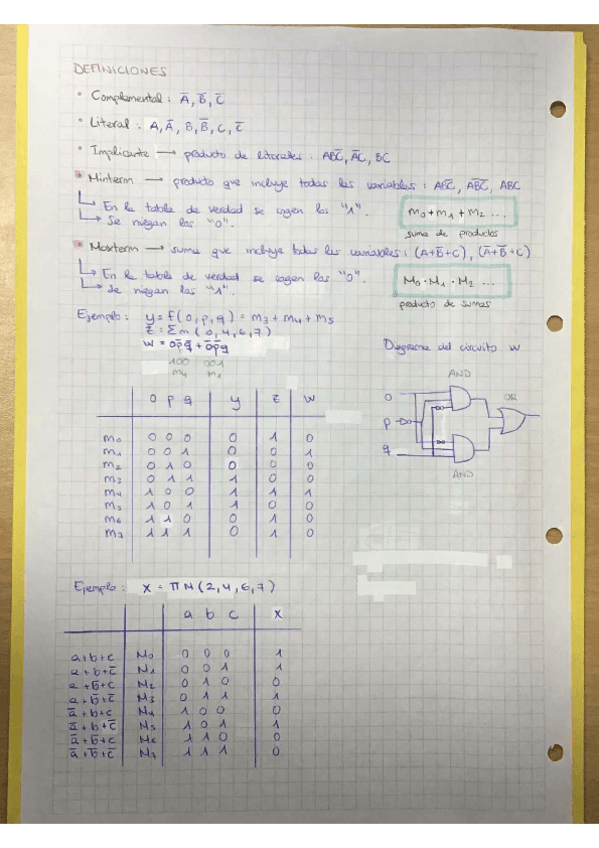 DEFINICIONES
• Complemental: A̅, B̅, C̅
• Literal: A, A̅, B, B̅, C, C̅
• Implicante → producto de literales: ABC̅, A̅C, BC
• Minterm → producto que incluye todas las variables: ABC̅, AB̅C̅, ABC
↳ En la tabla de verdad se cogen los "1".
↳ Se niegan los "0".
m₀ + m₁ + m₂ ...
suma de productos
• Maxterm → suma que incluye todas las variables: (A+B̅+C), (A̅+B̅+C)
↳ En la tabla de verdad se cogen los "0".
↳ Se niegan los "1".
M₀ · M₁ · M₂ ...
producto de sumas
Ejemplo: y = f(o,p,q) = m₃ + m₄ + m₅
z = Σm (0,4,6,7)
w = op̅q̅ + o̅p̅q
100 001
m₄ m₁
Diagrama del circuito w
AND
OR
o
p
q
AND
o p q y z w
m₀ 0 0 0 0 1 0
m₁ 0 0 1 0 0 1
m₂ 0 1 0 0 0 0
m₃ 0 1 1 1 0 0
m₄ 1 0 0 1 1 1
m₅ 1 0 1 1 0 0
m₆ 1 1 0 0 1 0
m₇ 1 1 1 0 1 0
Ejemplo: x = πM(2,4,6,7)
a b c x
a+b+c M₀ 0 0 0 1
a+b+c̅ M₁ 0 0 1 1
a+b̅+c M₂ 0 1 0 0
a+b̅+c̅ M₃ 0 1 1 1
a̅+b+c M₄ 1 0 0 0
a̅+b+c̅ M₅ 1 0 1 1
a̅+b̅+c M₆ 1 1 0 0
a̅+b̅+c̅ M₇ 1 1 1 0